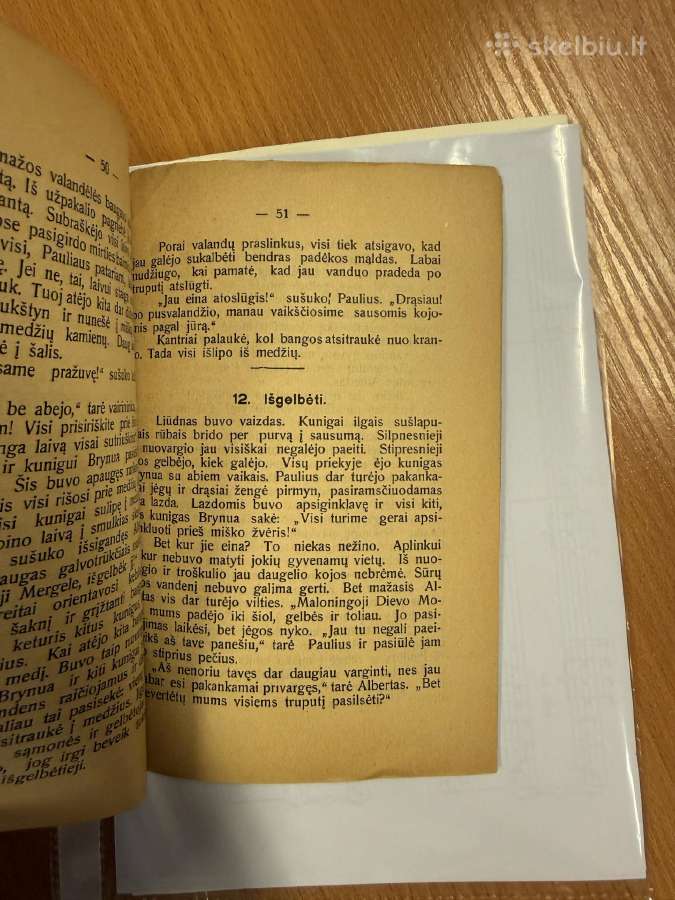 skelbiu.lt
— 50 —
mažos valandėlės
Iš užpakalio
Subraškėjo visi
pasigirdo
visi, Pauliaus patariam,
Jei ne, tai, laivui
Tuoj atėjo kita dar
ir nunešė į
medžių kamienų. Daug
ė į šalis.
same pražuvę!“ sušuko
be abejo,“ tarė
Visi prisiriškite prie
laivą visai
ir kunigui Brynua
Šis buvo apaugęs
visi rišosi prie medžių
kunigai sulipę į
laivą į smulkias
sušuko išsigandęs
galvotrūkčiais
Mergele, išgelbėk
orientavosi
šaknį ir grįžtanti
keturis kitus kunigus
Kai atėjo kita
medį. Buvo taip
Brynua ir kiti kunigai
raičiojamus ir
tai pasisekė:
į medžius.
sąmonės ir
jog irgi beveik
išgelbėtieji.
— 51 —
Porai valandų praslinkus, visi tiek atsigavo, kad
jau galėjo sukalbėti bendras padėkos maldas. Labai
nudžiugo, kai pamatė, kad jau vanduo pradeda po
truputį atslūgti.
„Jau eina atoslūgis!“ sušuko Paulius. „Drąsiau!
po pusvalandžio, manau vaikščiosime sausomis kojo-
mis pagal jūrą.“
Kantriai palaukė, kol bangos atsitraukė nuo kran-
o. Tada visi išlipo iš medžių.
12. Išgelbėti.
Liūdnas buvo vaizdas. Kunigai ilgais sušlapu-
ais rūbais brido per purvą į sausumą. Silpnesnieji
nuovargio jau visiškai negalėjo paeiti. Stipresnieji
os gelbėjo, kiek galėjo. Visų priekyje ėjo kunigas
Brynua su abiem vaikais. Paulius dar turėjo pakanka-
ai jėgų ir drąsiai žengė pirmyn, pasiramsčiuodamas
lazda. Lazdomis buvo apsiginklavę ir visi kiti,
s kunigas Brynua sakė: „Visi turime gerai apsi-
nkluoti prieš miško žvėris!“
Bet kur jie eina? To niekas nežino. Aplinkui
kur nebuvo matyti jokių gyvenamų vietų. Iš nuo-
gio ir troškulio jau daugelio kojos nebrėmė. Sūrų
os vandenį nebuvo galima gerti. Bet mažasis Al-
tas vis dar turėjo vilties. „Maloningoji Dievo Mo-
mums padėjo iki šiol, gelbės ir toliau. Jo pasi-
imas laikėsi, bet jėgos nyko. „Jau tu negali paei-
ikš aš tave panešiu,“ tarė Paulius ir pasiūlė jam
stiprius pečius.
„Aš nenoriu tavęs dar daugiau varginti, nes jau
abar esi pakankamai privargęs,“ tarė Albertas. „Bet
evertėtų mums visiems truputį pasilsėti?“